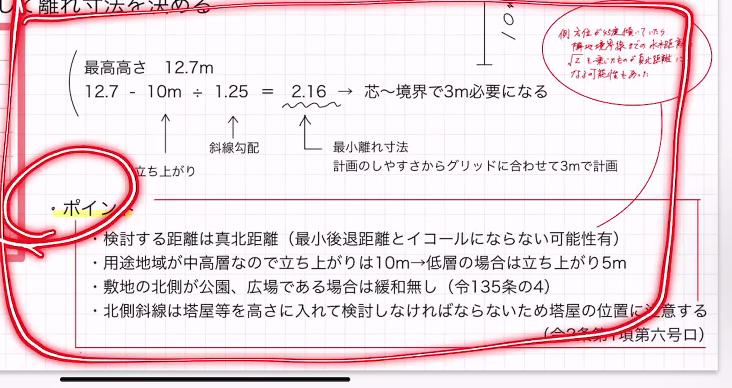 して離れ寸法を決める
10°
例 方位が45度傾いていたら
隣地境界線までの水平距離
√2 を乗じたものが真北距離に
なる可能性もあった
最高高さ 12.7m
12.7 - 10m ÷ 1.25 = 2.16 → 芯〜境界で3m必要になる
斜線勾配
最小離れ寸法
立ち上がり
計画のしやすさからグリッドに合わせて3mで計画
・ポイント
・検討する距離は真北距離（最小後退距離とイコールにならない可能性有）
・用途地域が中高層なので立ち上がりは10m→低層の場合は立ち上がり5m
・敷地の北側が公園、広場である場合は緩和無し（令135条の4）
・北側斜線は塔屋等を高さに入れて検討しなければならないため塔屋の位置に注意する
（令2条第1項第六号ロ）